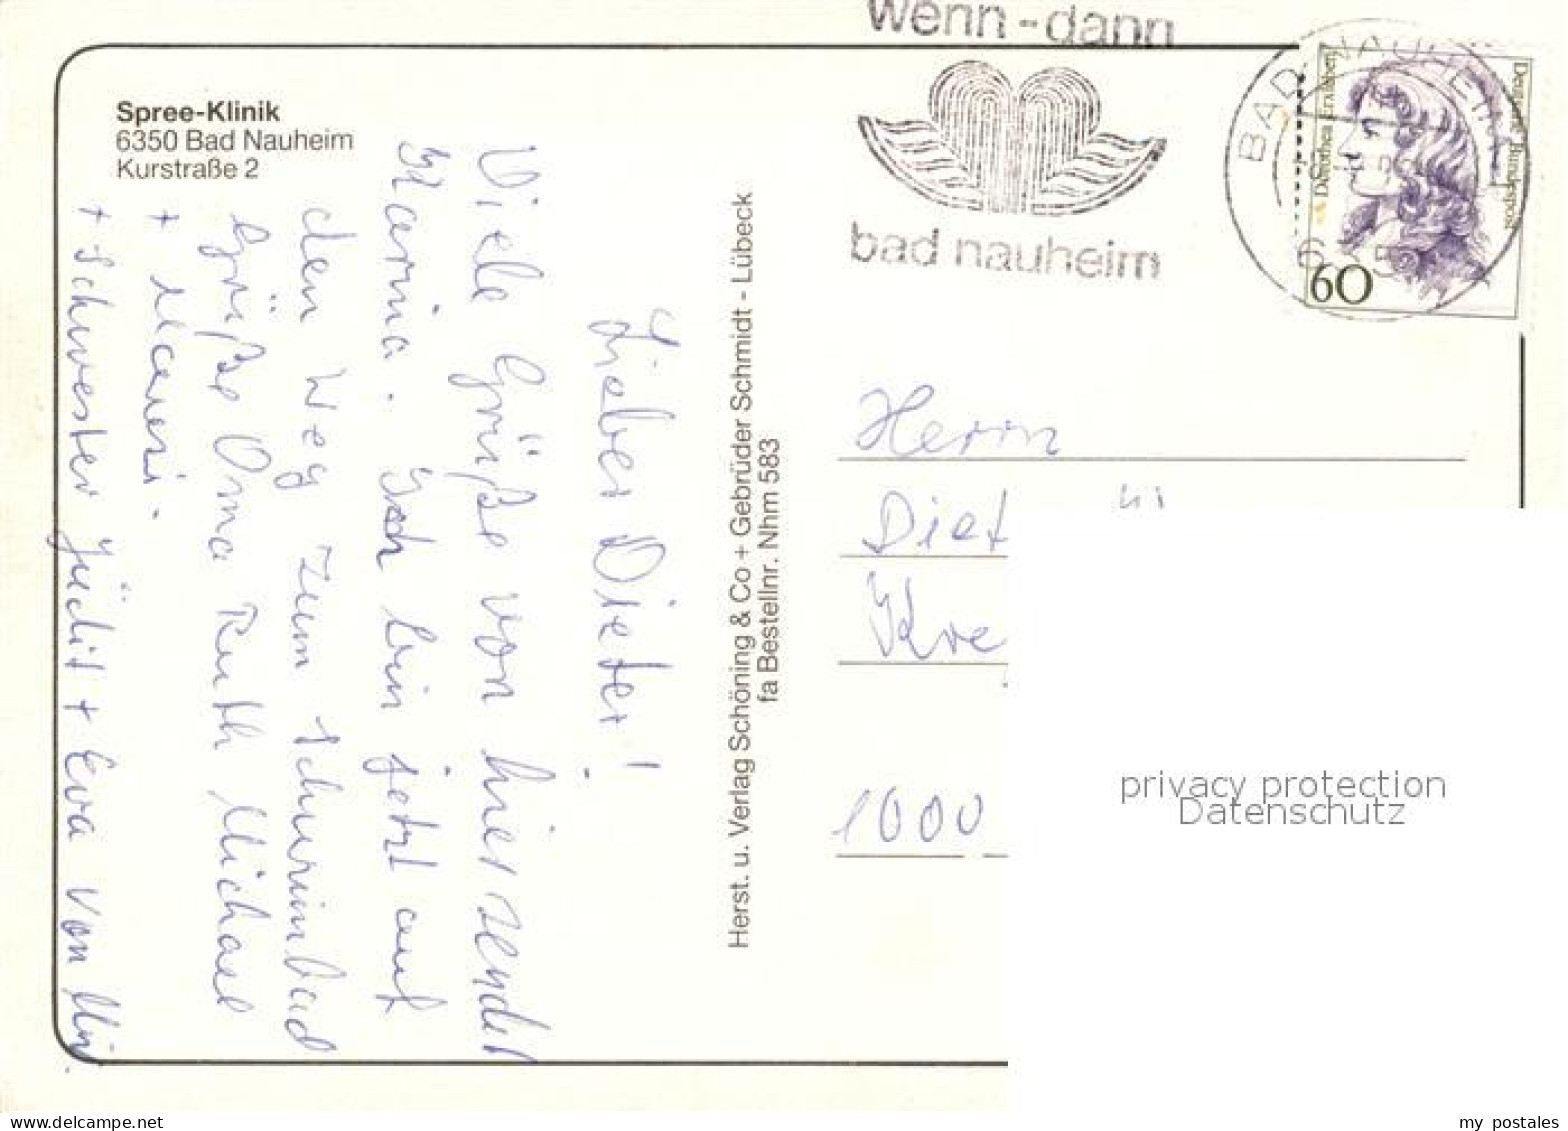 Spree-Klinik
6350 Bad Nauheim
Kurstraße 2
wenn-dann
bad nauheim
BAD NAUHEIM
6350
Deutsche Bundespost
Dorothea Erxleben
60
Lieber Dieter!
Viele Grüße von hier sendet
Karina. Ich bin jetzt auf
den Weg zum Schwimbad
Grüße Oma Ruth Michael
+ Mausi.
+ Schwester Jüdit + Eva von Mir.
Herst. u. Verlag Schöning & Co + Gebrüder Schmidt - Lübeck
fa Bestellnr. Nhm 583
Herrn
Diet
Kre
1000
privacy protection
Datenschutz
www.delcampe.net
my_postales